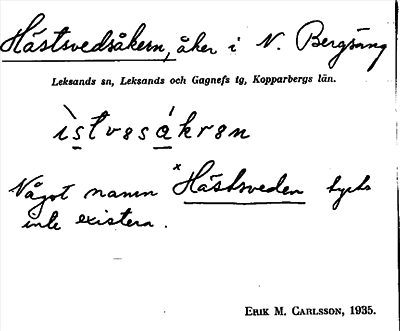 Hästsvedsåkern, åker i N. Bergsäng
Leksands sn, Leksands och Gagnefs tg, Kopparbergs län.
Något namn ˣHästsveden tycks
inte existera.
ERIK M. CARLSSON, 1935.